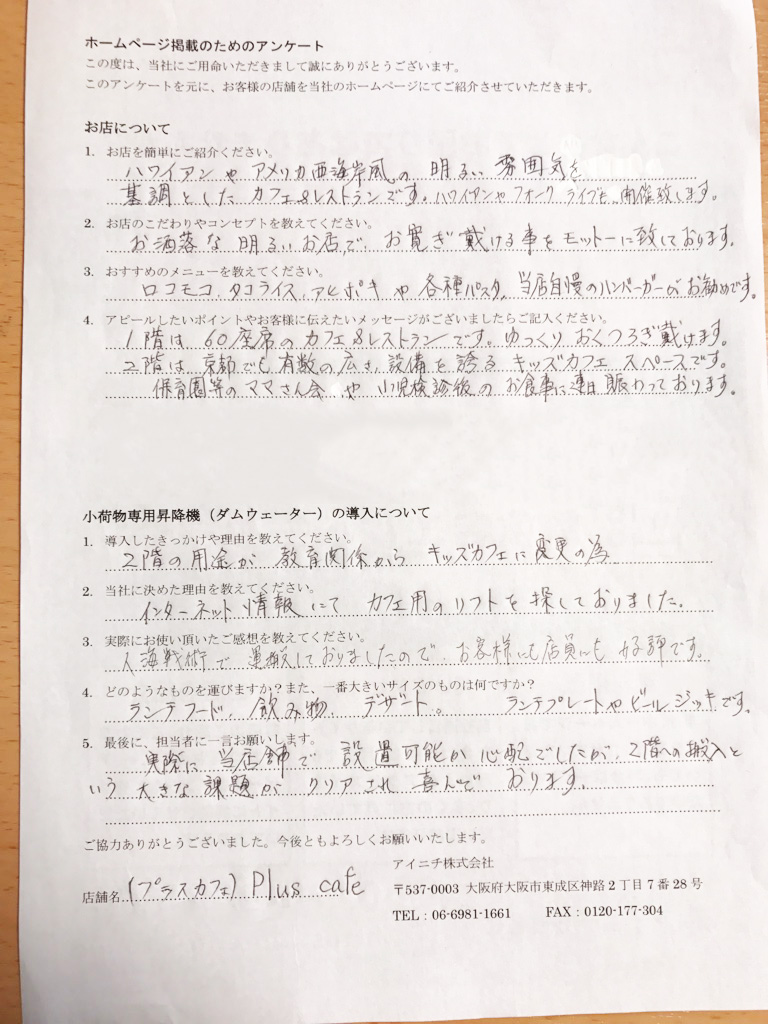 ホームページ掲載のためのアンケート
この度は、当社にご用命いただきまして誠にありがとうございます。
このアンケートを元に、お客様の店舗を当社のホームページにてご紹介させていただきます。
お店について
1. お店を簡単にご紹介ください。
ハワイアンや アメリカ西海岸風の 明るい 雰囲気を
基調とした カフェ&レストランです。ハワイアンや フォーク ライブも 開催致します。
2. お店のこだわりやコンセプトを教えてください。
お洒落な 明るいお店で、お寛ぎ戴ける事をモットーに致しております。
3. おすすめのメニューを教えてください。
ロコモコ、タコライス、アヒポキや 各種パスタ、当店自慢のハンバーガーがお勧めです。
4. アピールしたいポイントやお客様に伝えたいメッセージがございましたらご記入ください。
1階は 60座席の カフェ&レストランです。ゆっくり おくつろぎ戴けます。
2階は 京都でも有数の広さ、設備を誇る キッズカフェ スペースです。
保育園等の ママさん会 や 小児検診後の お食事に連日賑わっております。
小荷物専用昇降機(ダムウェーター)の導入について
1. 導入したきっかけや理由を教えてください。
2階の用途が 教育関係から キッズカフェに変更の為
2. 当社に決めた理由を教えてください。
インターネット情報にて カフェ用のリフトを探しておりました。
3. 実際にお使い頂いたご感想を教えてください。
人海戦術で 運搬しておりましたので、お客様にも店員にも 好評です。
4. どのようなものを運びますか?また、一番大きいサイズのものは何ですか?
ランチフード、飲み物、デザート。 ランチプレートやビールジョッキです。
5. 最後に、担当者に一言お願いします。
実際に 当店舗で 設置可能か心配でしたが、2階への搬入と
いう 大きな課題が クリアされ 喜んで おります。
ご協力ありがとうございました。今後ともよろしくお願いいたします。
店舗名 (プラスカフェ) Plus cafe
アイニチ株式会社
〒537-0003 大阪府大阪市東成区神路2丁目7番28号
TEL:06-6981-1661 FAX:0120-177-304